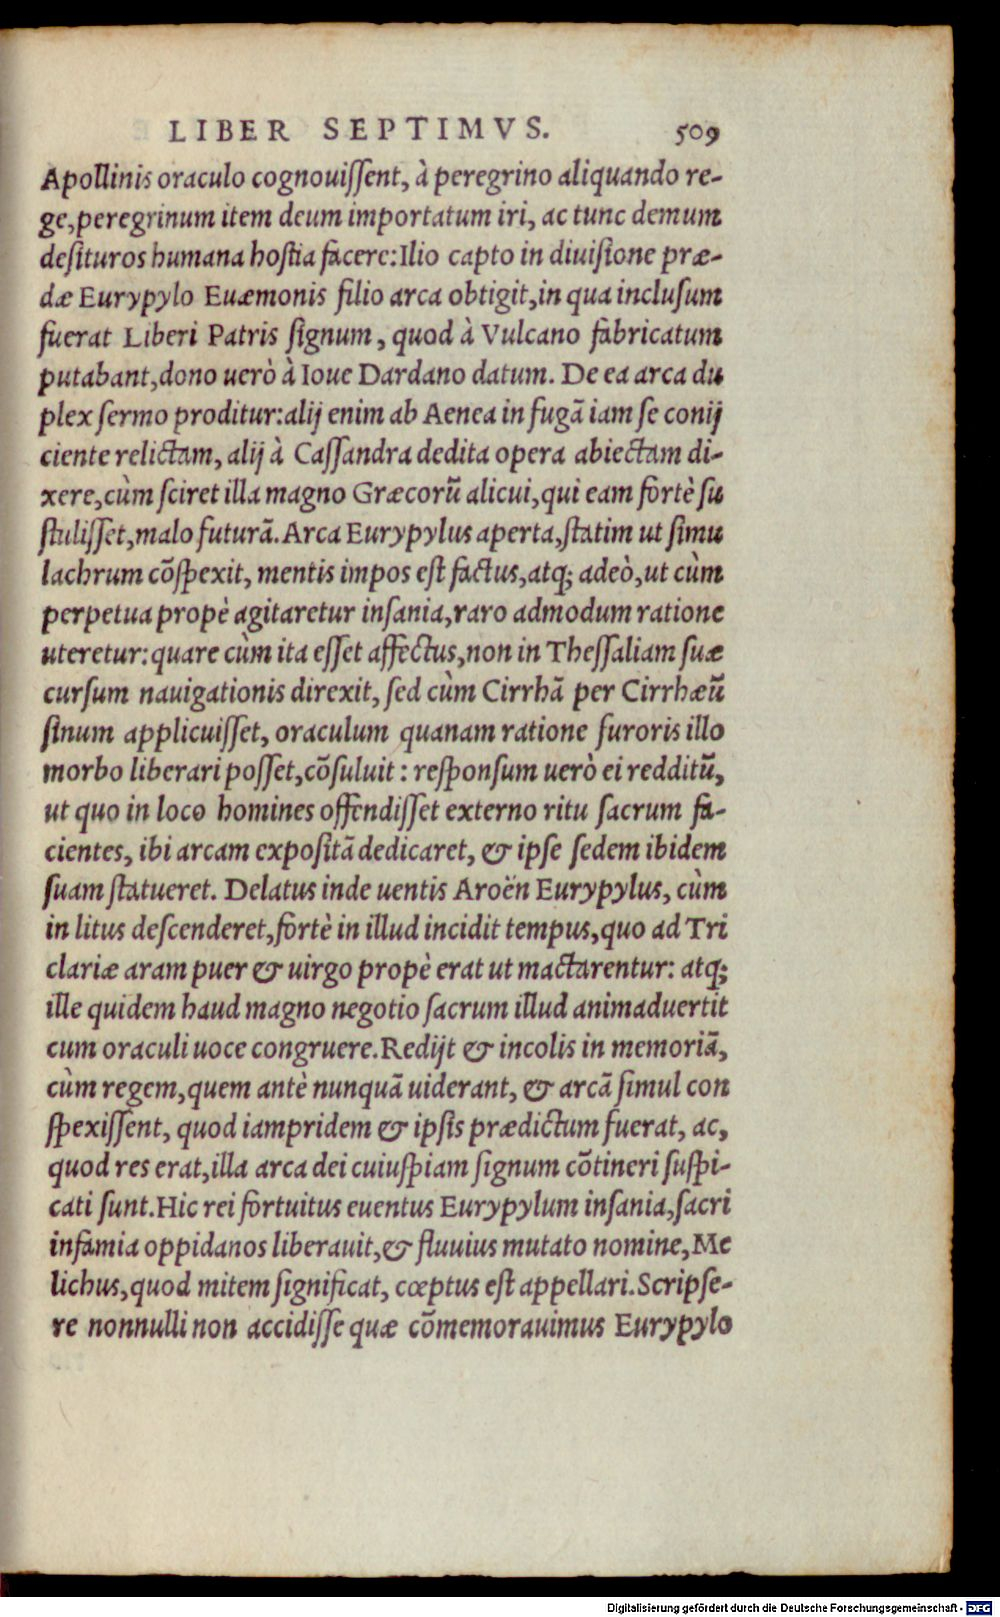 LIBER SEPTIMVS. 509
Apollinis oraculo cognouissent, à peregrino aliquando re-
ge, peregrinum item deum importatum iri, ac tunc demum
desituros humana hostia facere: Ilio capto in diuisione præ-
dæ Eurypylo Euæmonis filio arca obtigit, in qua inclusum
fuerat Liberi Patris signum, quod à Vulcano fabricatum
putabant, dono uerò à Ioue Dardano datum. De ea arca du
plex sermo proditur: alij enim ab Aenea in fugã iam se conij
ciente relictam, alij à Cassandra dedita opera abiectam di-
xere, cùm sciret illa magno Græcorũ alicui, qui eam fortè su
stulisset, malo futurã. Arca Eurypylus aperta, statim ut simu
lachrum cõspexit, mentis impos est factus, atq; adeò, ut cùm
perpetua propè agitaretur insania, raro admodum ratione
uteretur: quare cùm ita esset affectus, non in Thessaliam suæ
cursum nauigationis direxit, sed cùm Cirrhã per Cirrhæũ
sinum applicuisset, oraculum quanam ratione furoris illo
morbo liberari posset, cõsuluit: responsum uerò ei redditũ,
ut quo in loco homines offendisset externo ritu sacrum fa-
cientes, ibi arcam expositã dedicaret, & ipse sedem ibidem
suam statueret. Delatus inde uentis Aroën Eurypylus, cùm
in litus descenderet, fortè in illud incidit tempus, quo ad Tri
clariæ aram puer & uirgo propè erat ut mactarentur: atq;
ille quidem haud magno negotio sacrum illud animaduertit
cum oraculi uoce congruere. Redijt & incolis in memoriã,
cùm regem, quem antè nunquã uiderant, & arcã simul con
spexissent, quod iampridem & ipsis prædictum fuerat, ac,
quod res erat, illa arca dei cuiuspiam signum cõtineri suspi-
cati sunt. Hic rei fortuitus euentus Eurypylum insania, sacri
infamia oppidanos liberauit, & fluuius mutato nomine, Me
lichus, quod mitem significat, cœptus est appellari. Scripse-
re nonnulli non accidisse quæ cõmemorauimus Eurypylo
Digitalisierung gefördert durch die Deutsche Forschungsgemeinschaft - DFG